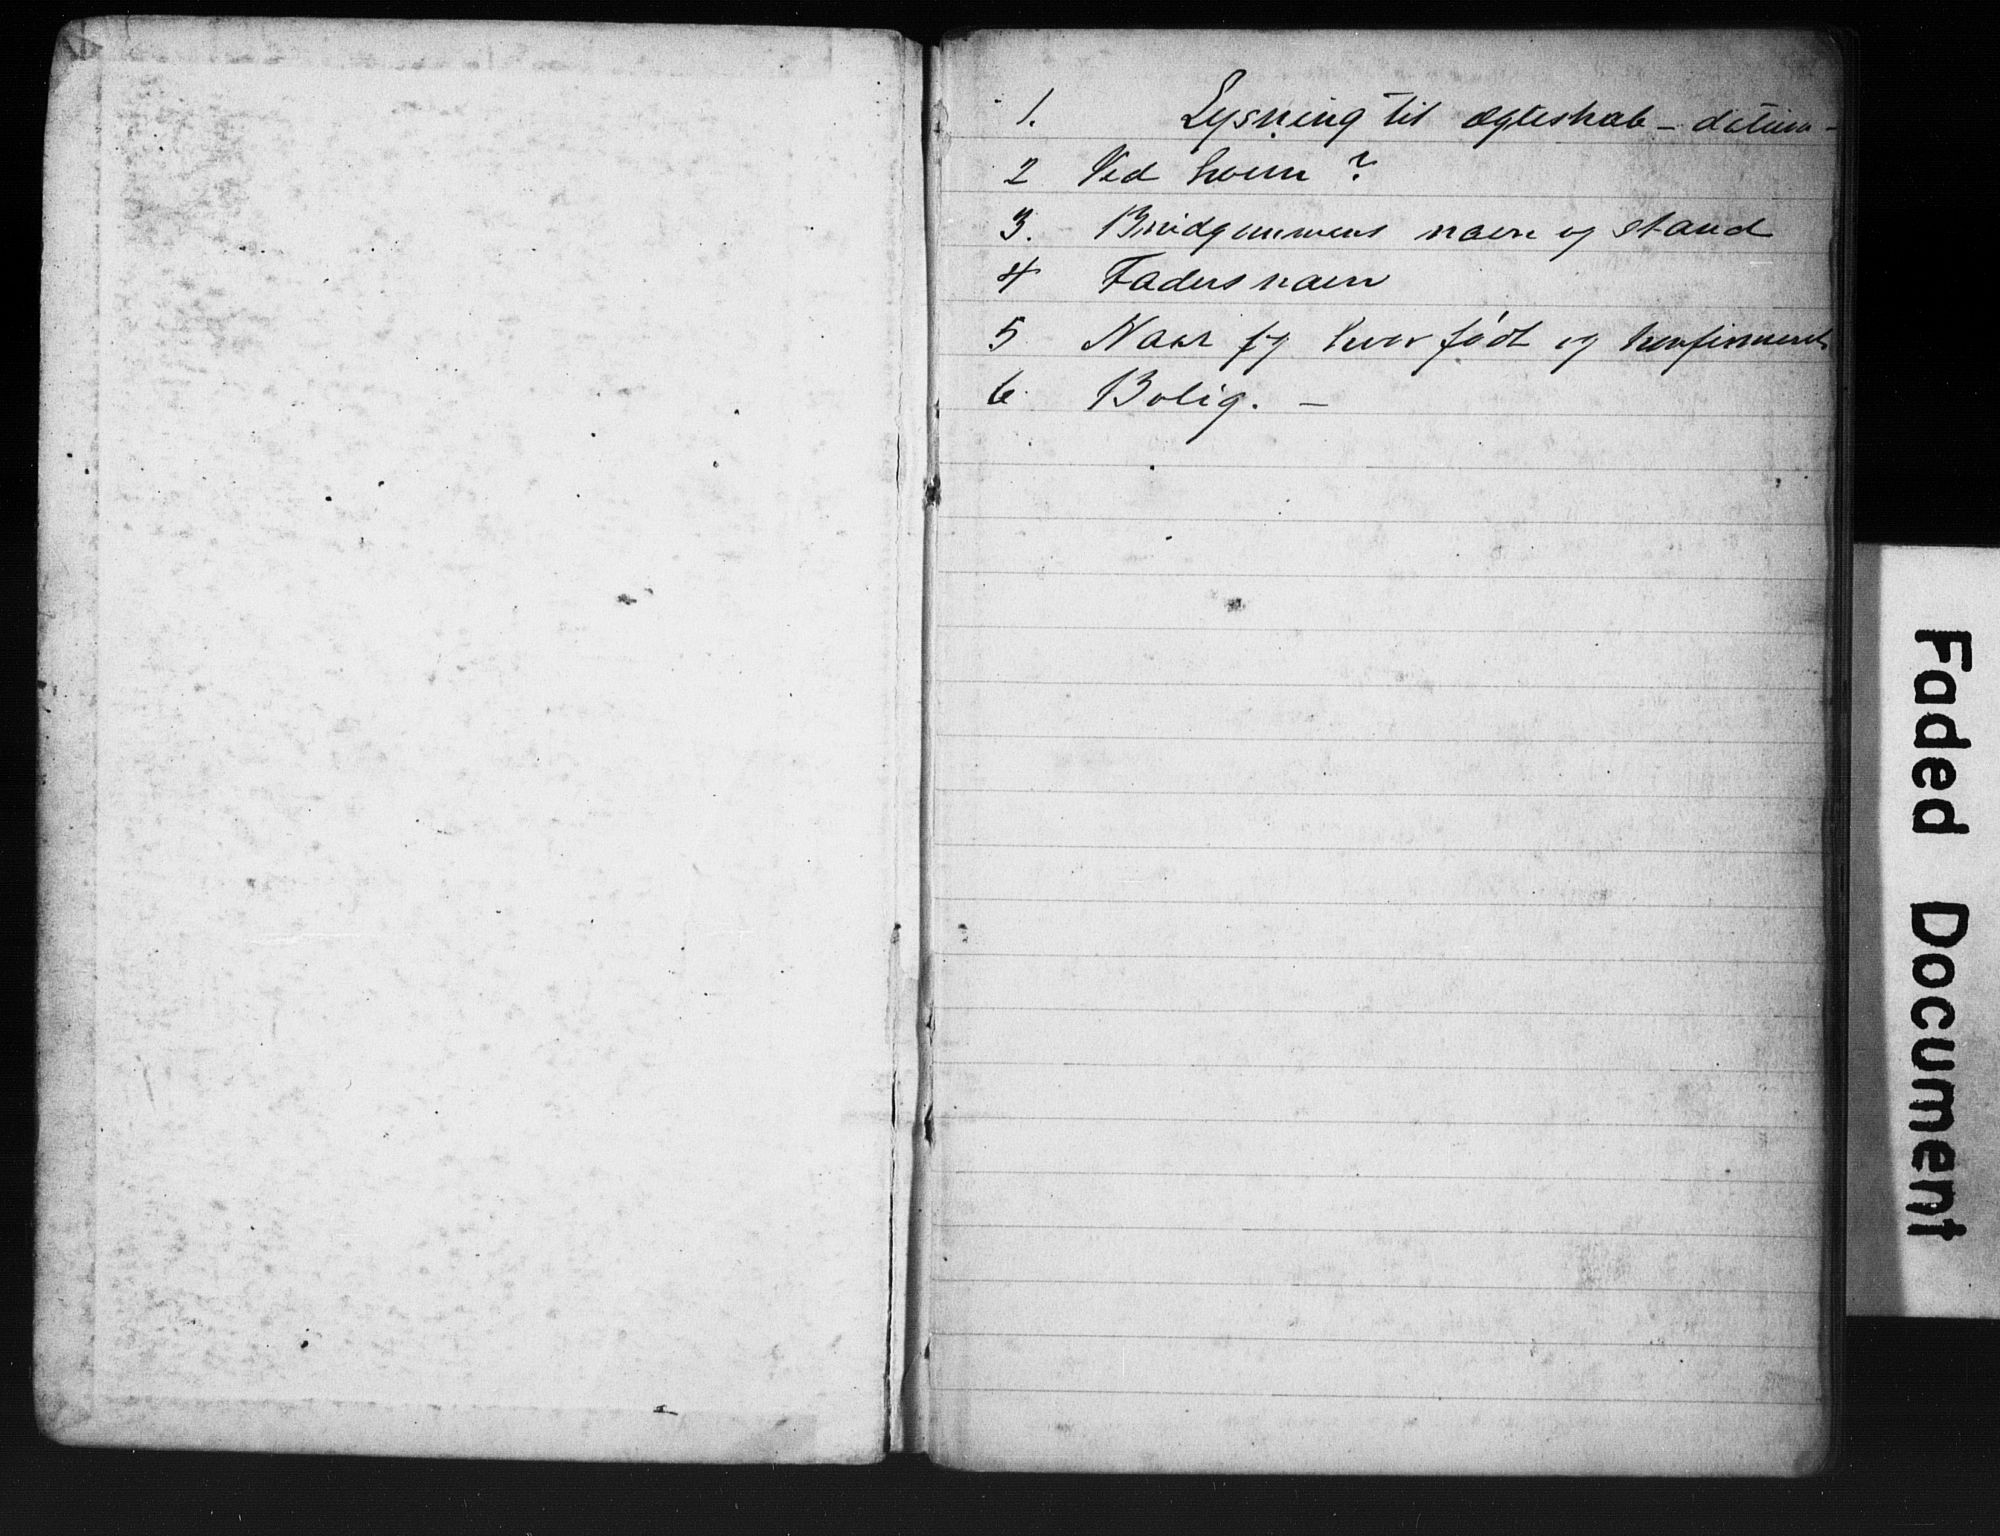 1. Lysning til ægteskab - datum -
2 Ved hvem?
3. Brudgommens navn og stand
4 Faders navn
5 Naar og hvor født og konfirmeret
6. Bolig. -
Faded Document